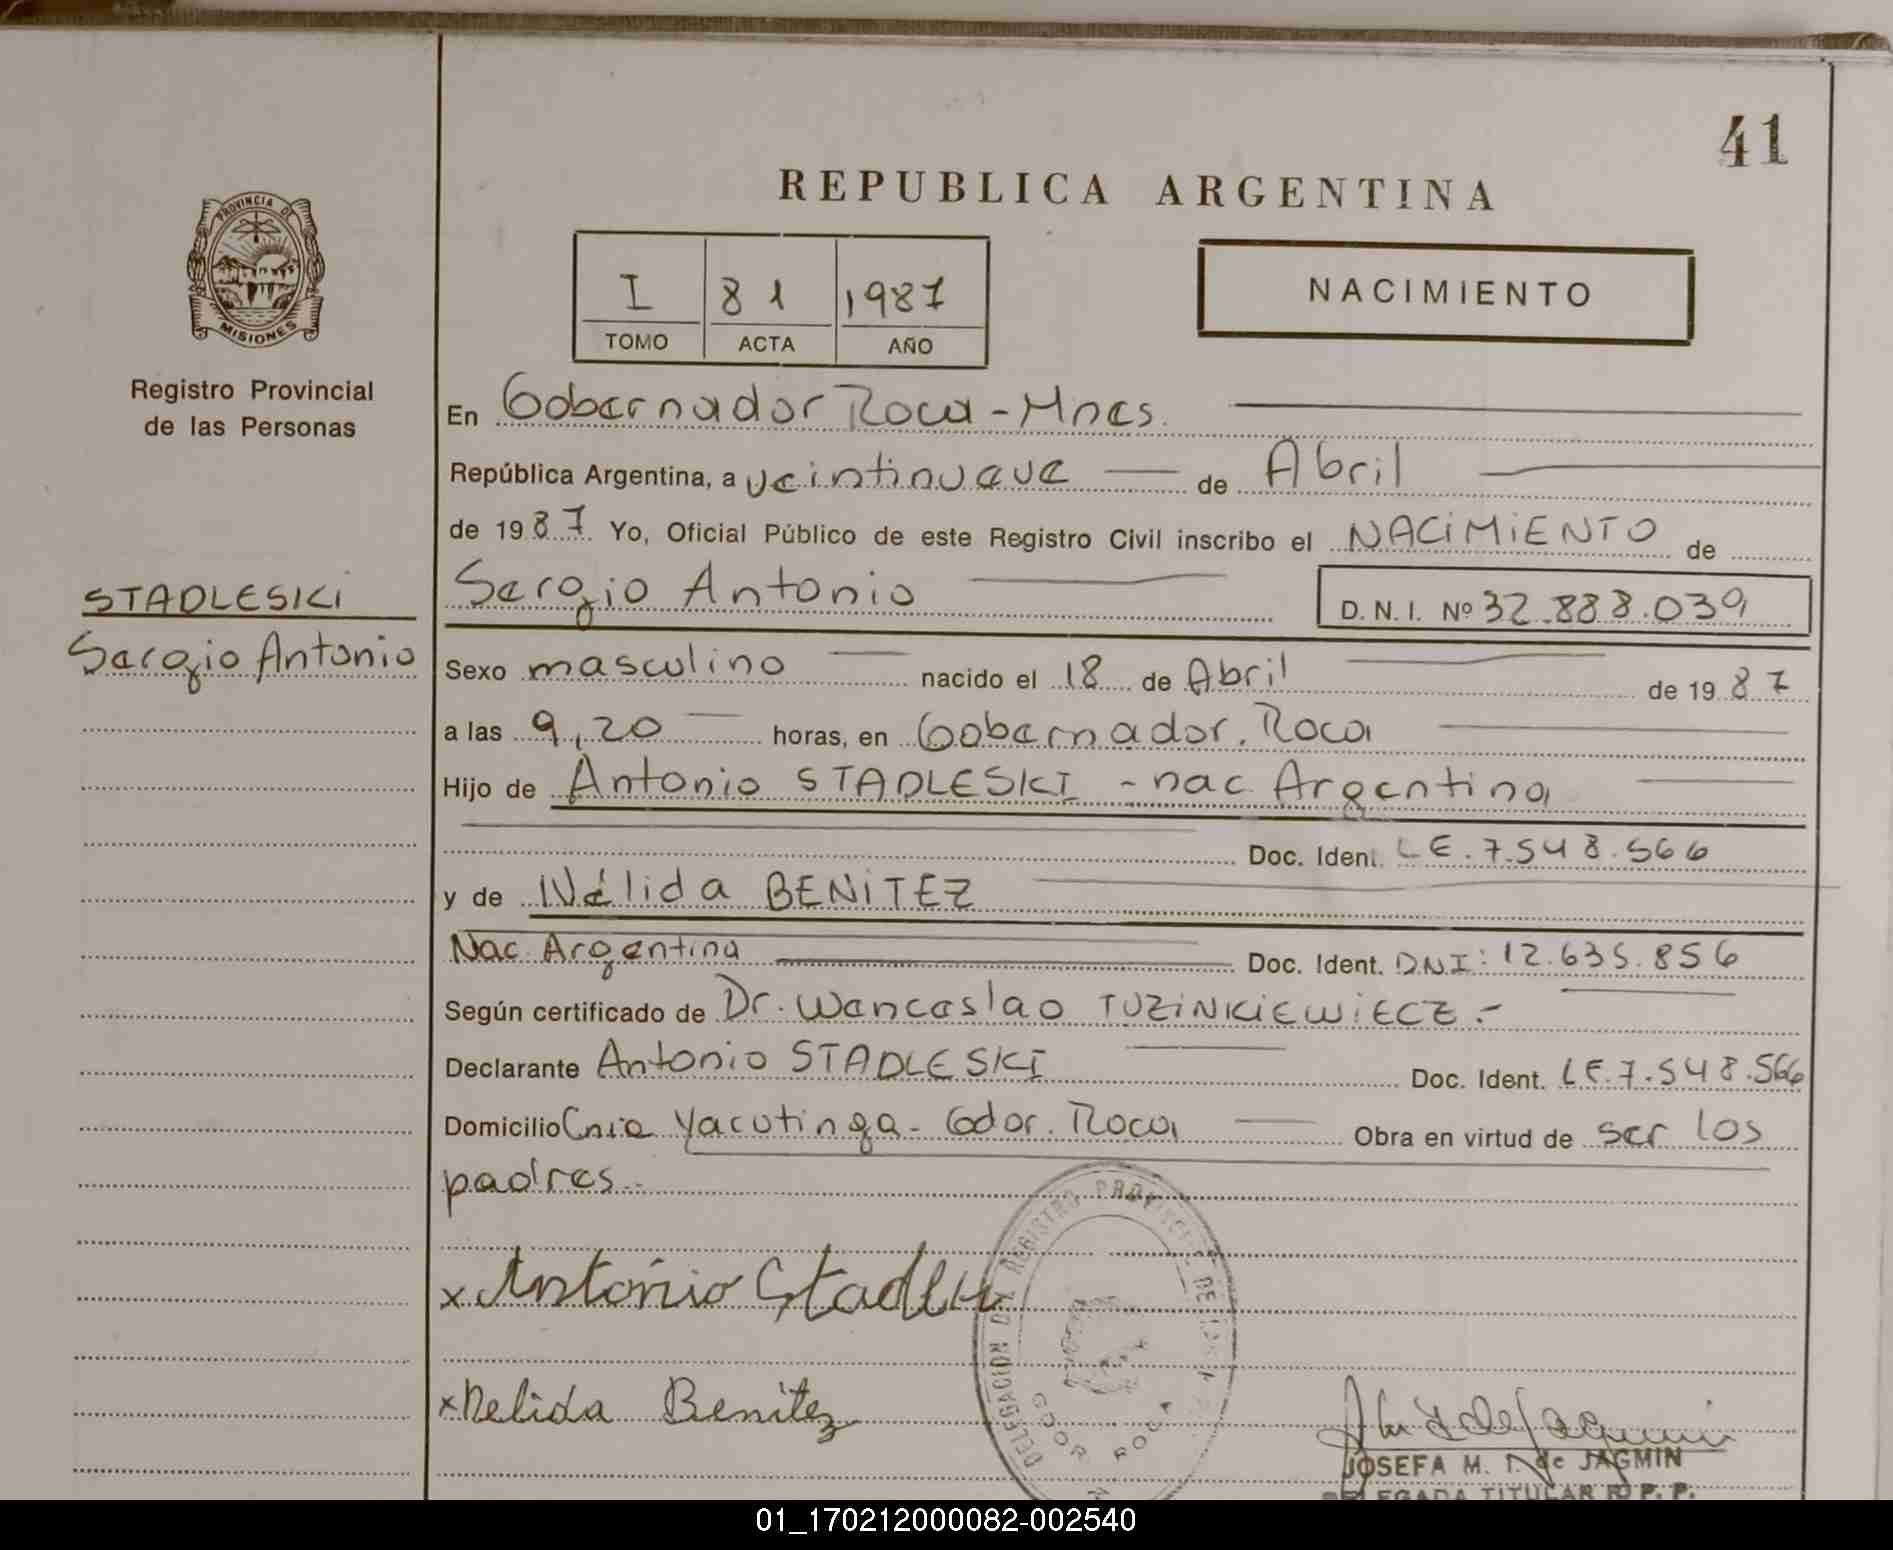 41
REPUBLICA ARGENTINA
PROVINCIA DE
MISIONES
I 81 1987
TOMO ACTA AÑO
NACIMIENTO
Registro Provincial
de las Personas
En Gobernador Roca - Mnes.
República Argentina, a veintinueve de Abril
de 1987. Yo, Oficial Público de este Registro Civil inscribo el NACIMIENTO de
STADLESKI
Sergio Antonio
Sergio Antonio D. N. I. Nº 32.888.039
Sexo masculino nacido el 18 de Abril de 1987
a las 9,20 horas, en Gobernador Roca
Hijo de Antonio STADLESKI - nac Argentina
Doc. Ident. LE. 7.548.566
y de Nélida BENITEZ
Nac. Argentina Doc. Ident. D.N.I: 12.635.856
Según certificado de Dr. Wenceslao TUZINKIEWIECZ.-
Declarante Antonio STADLESKI Doc. Ident. LE.7.548.566
Domicilio Cnia Yacutinga - Gdor. Roca Obra en virtud de ser los
padres.-
x Antonio Stadleski
x Nelida Benitez
DELEGACION DEL REGISTRO PROVINCIAL DE LAS
GDOR ROCA
JOSEFA M. T. de JAGMIN
DELEGADA TITULAR R. P. P.
01_170212000082-002540